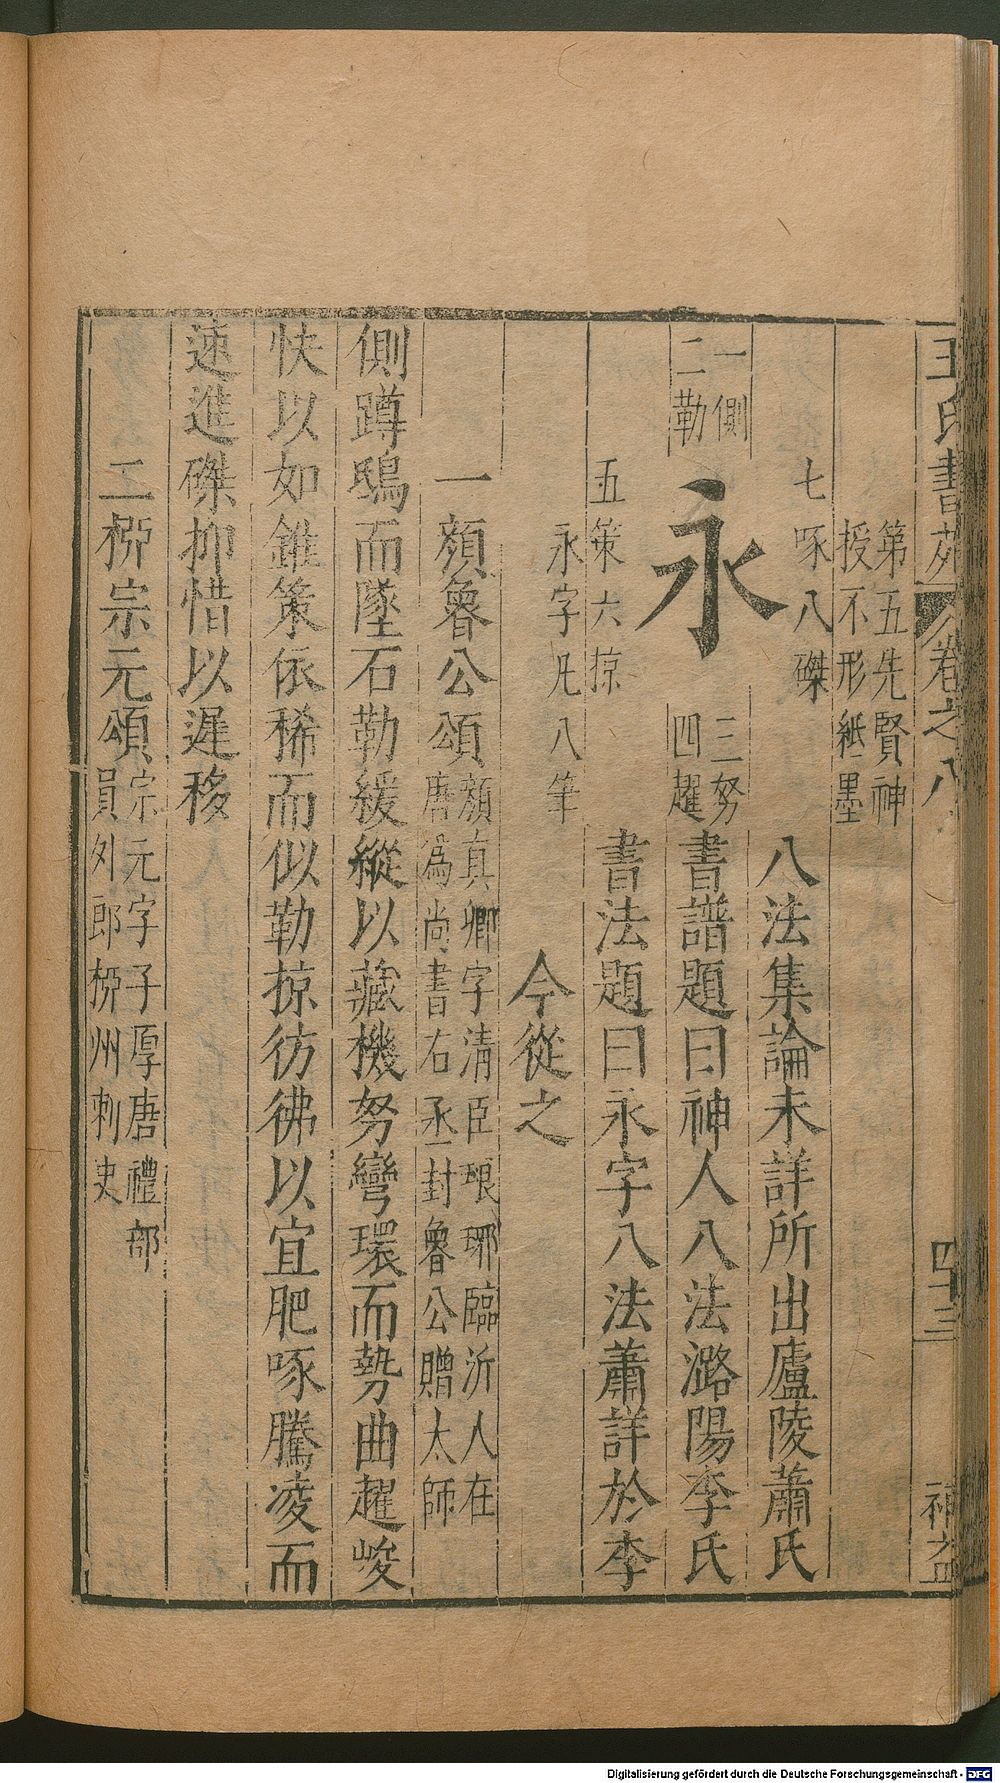 王氏書苑 卷之八 四十三 補益
第五先賢神
授不形紙墨
七啄八磔
八法集論未詳所出廬陵蕭氏
一側
二勒
永
三努
四趯
書譜題曰神人八法潞陽李氏
五策六掠
書法題曰永字八法蕭詳於李
永字凡八筆
今從之
一顔魯公頌
顔真卿字清臣琅琊臨沂人在
唐為尚書右丞封魯公贈太師
側蹲鴟而墜石勒緩縱以藏機努彎環而勢曲趯峻
快以如錐策依稀而似勒掠彷彿以宜肥啄騰凌而
速進磔抑惜以遲移
二栁宗元頌
宗元字子厚唐禮部
員外郎栁州刺史
Digitalisierung gefördert durch die Deutsche Forschungsgemeinschaft - DFG